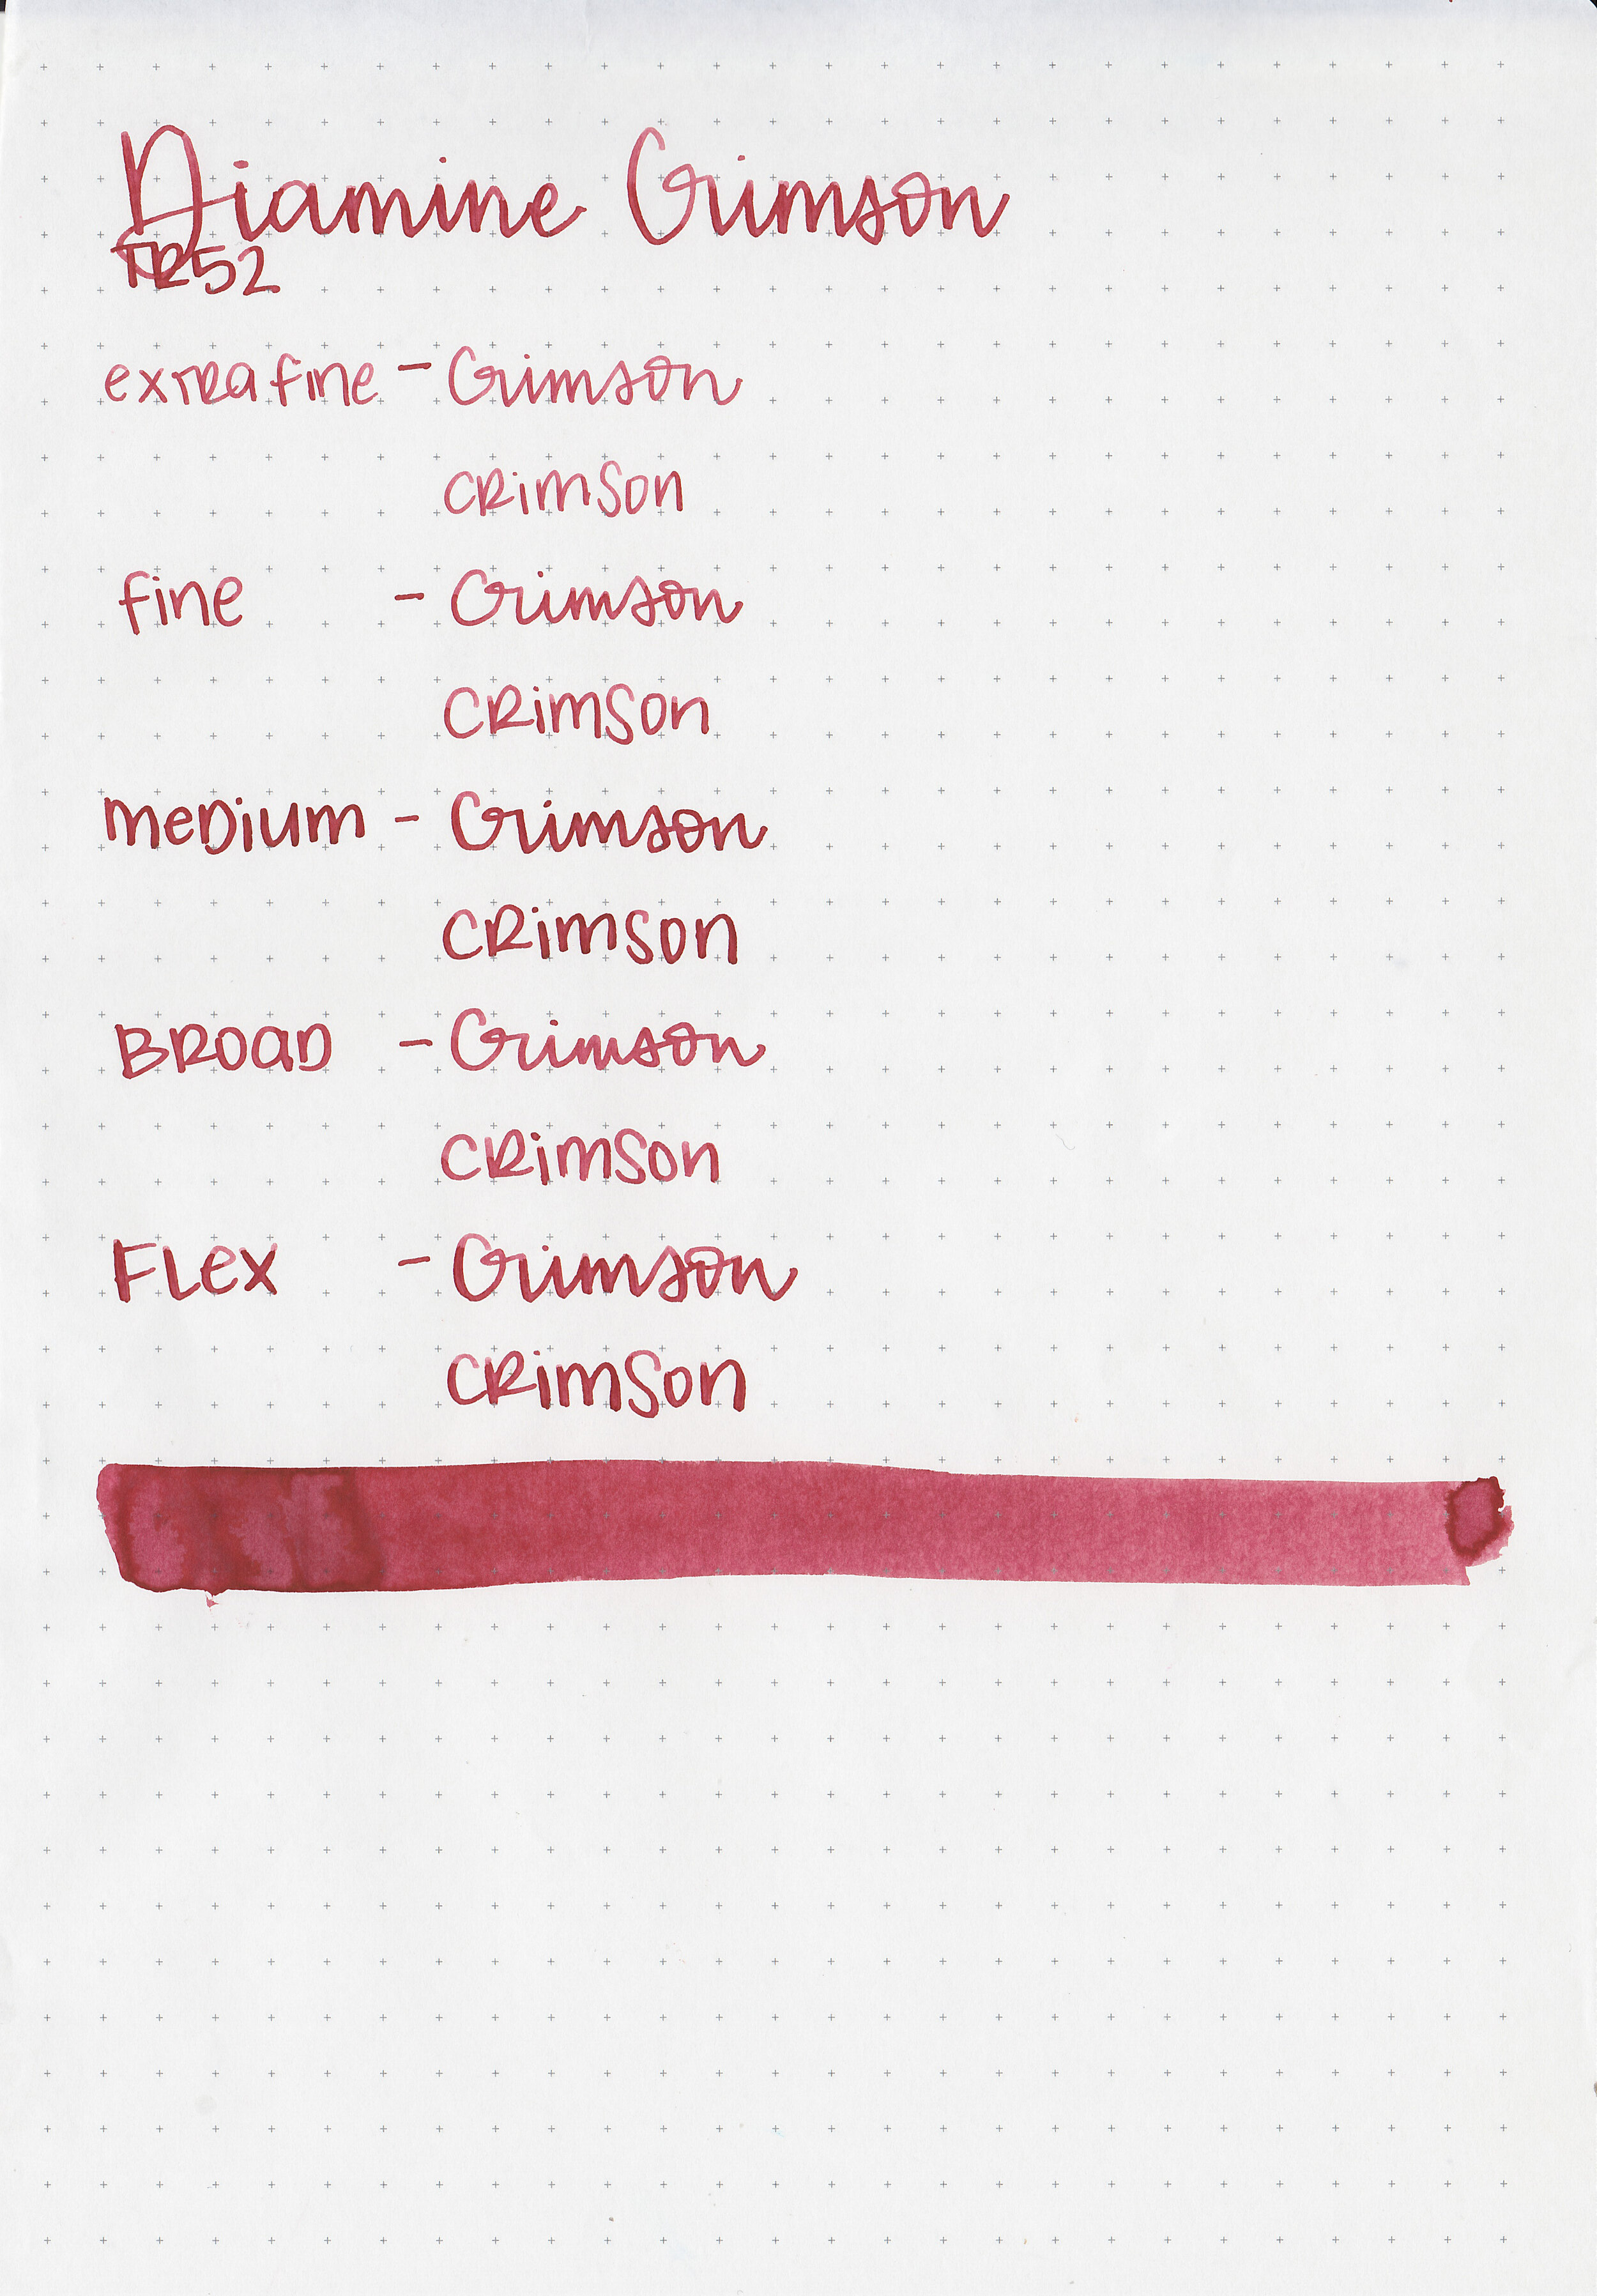 Diamine Crimson
TR52
extra fine - Crimson
CRimson
fine - Crimson
CRimson
meDium - Crimson
CRimson
BROaD - Crimson
CRimson
FLex - Crimson
CRimson